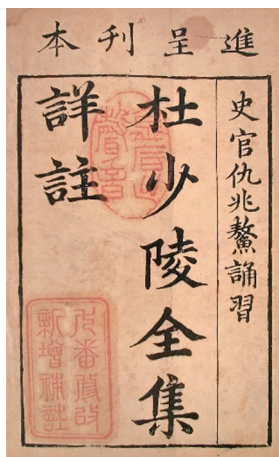 進呈刊本
史官仇兆鰲誦習
杜少陵全集
詳註
新增補註